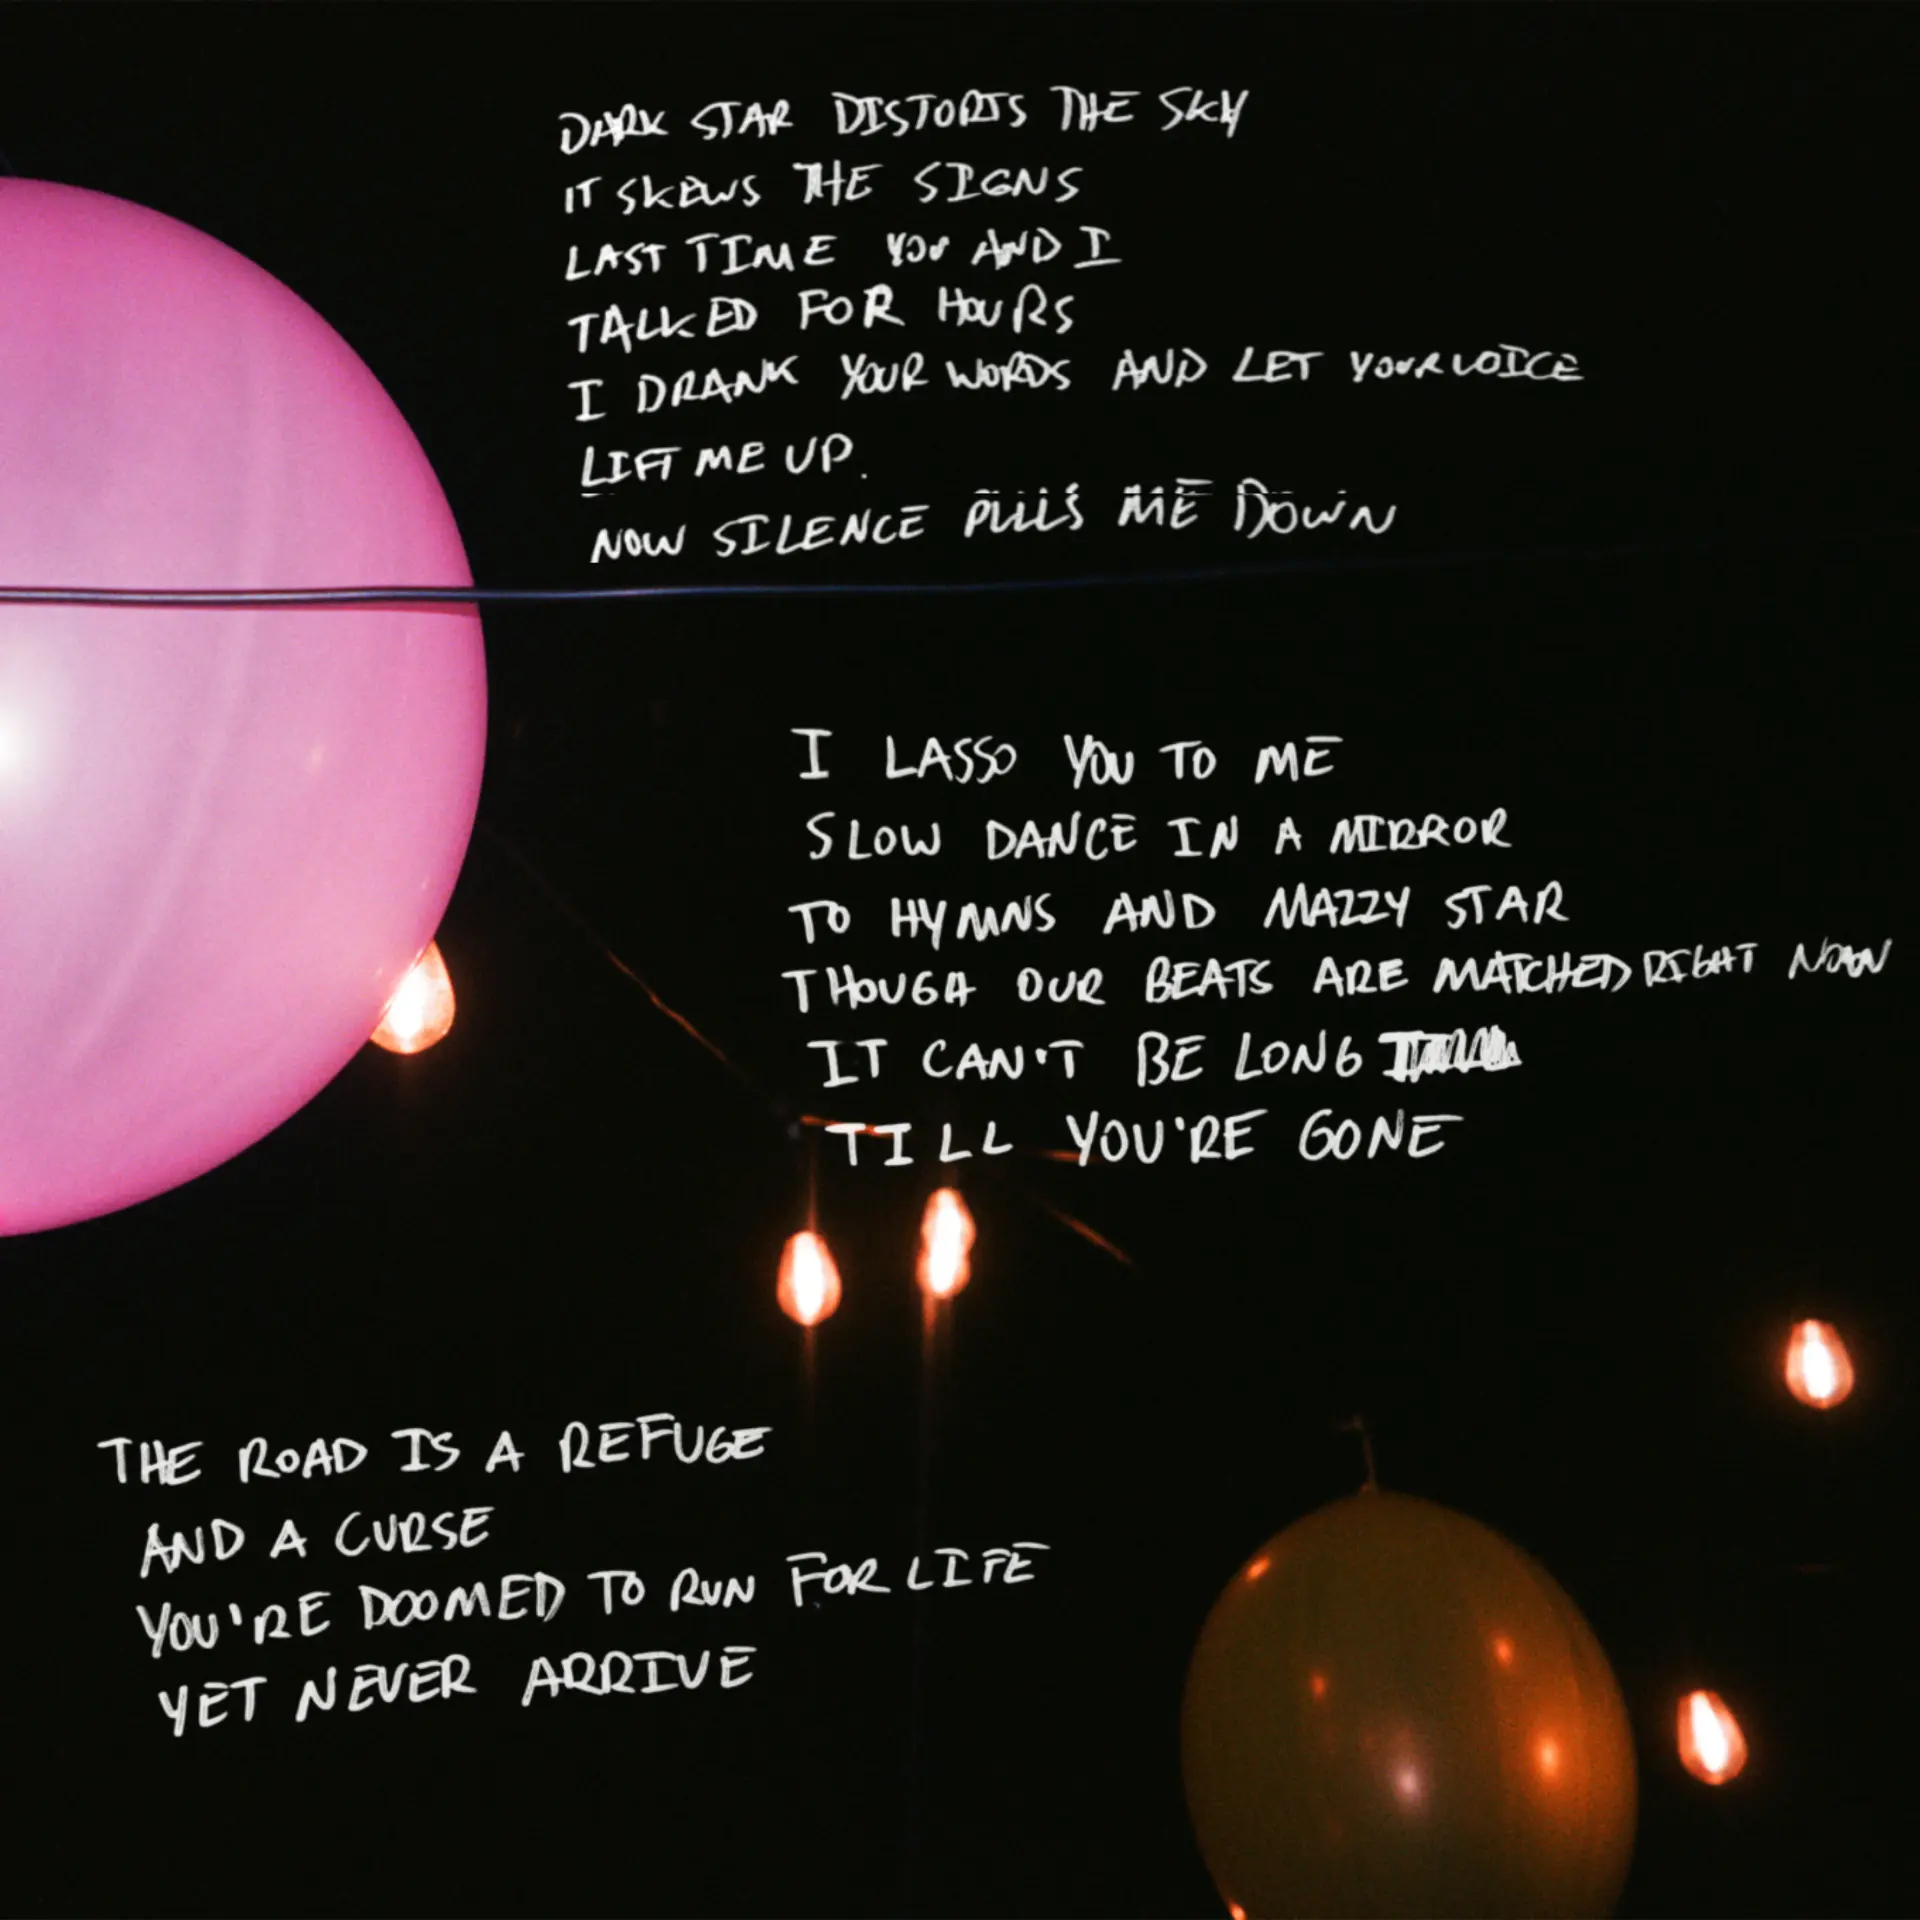 DARK STAR DISTORTS THE SKY
IT SKEWS THE SIGNS
LAST TIME YOU AND I
TALKED FOR HOURS
I DRANK YOUR WORDS AND LET YOUR VOICE
LIFT ME UP.
NOW SILENCE PULLS ME DOWN
I LASSO YOU TO ME
SLOW DANCE IN A MIRROR
TO HYMNS AND MAZZY STAR
THOUGH OUR BEATS ARE MATCHED RIGHT NOW
IT CAN'T BE LONG
TILL YOU'RE GONE
THE ROAD IS A REFUGE
AND A CURSE
YOU'RE DOOMED TO RUN FOR LIFE
YET NEVER ARRIVE